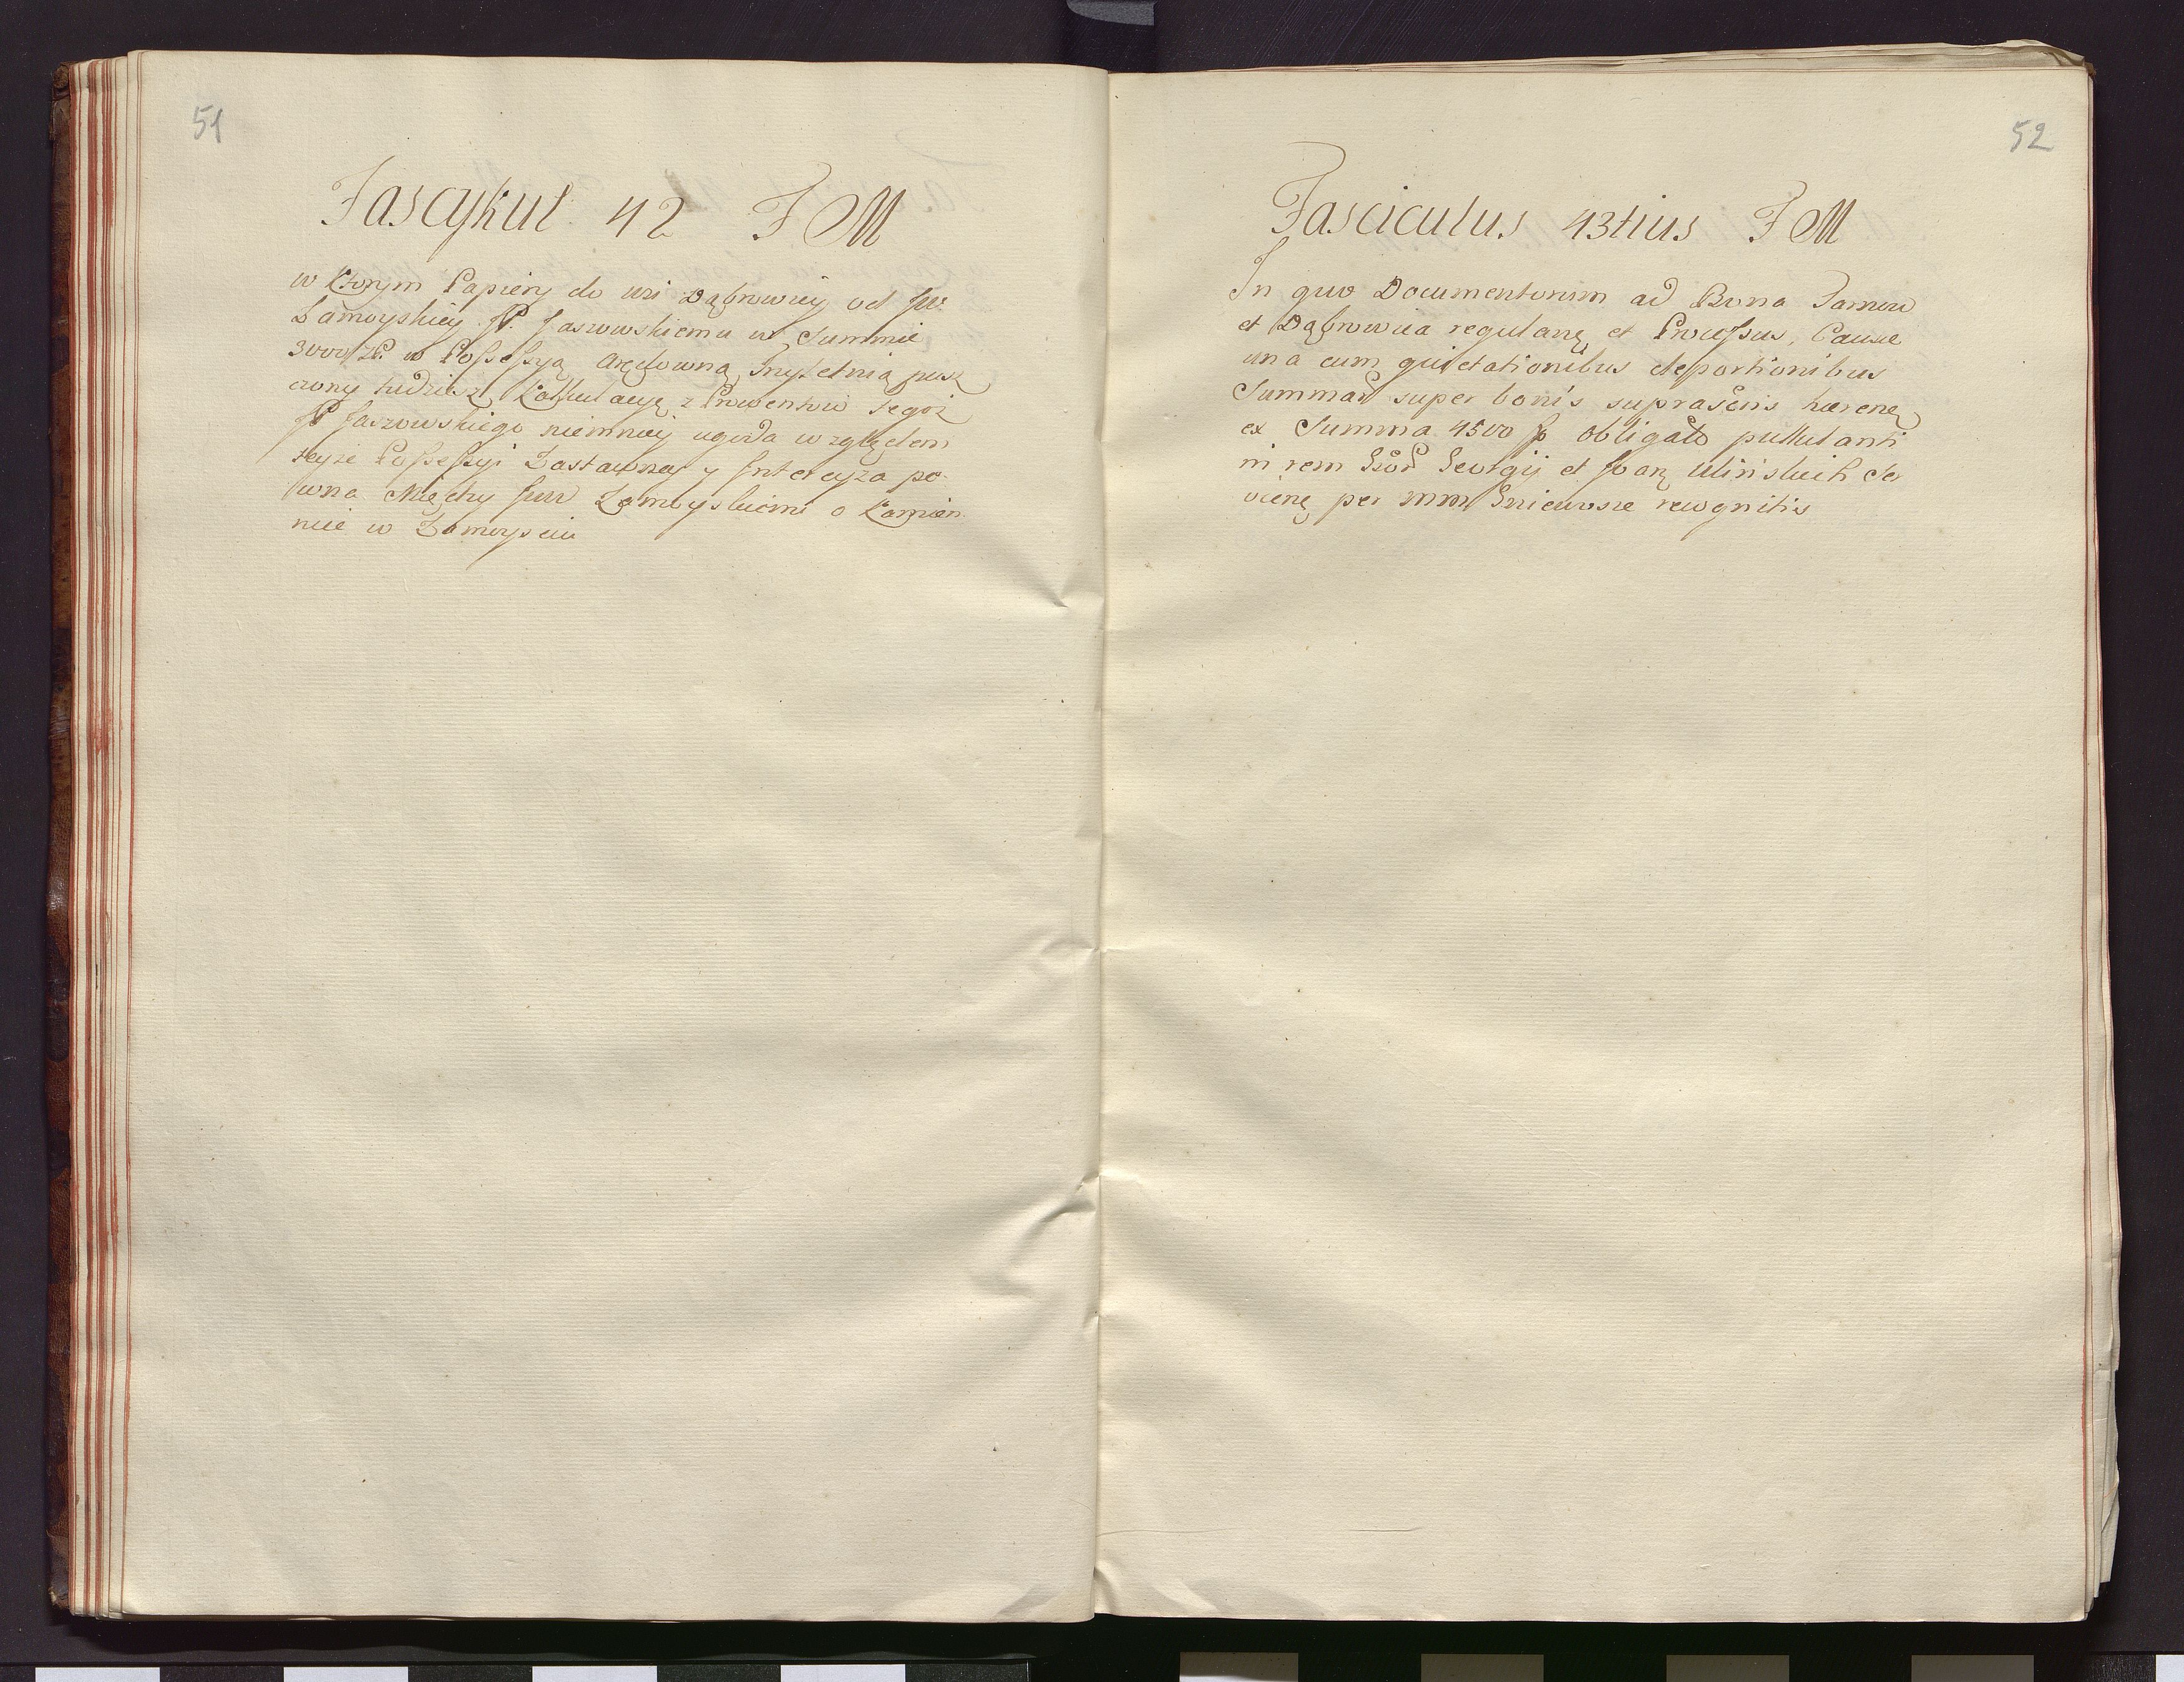 51
Fascykuł 42 F M
w ktorym Papiery do wsi Dąbrowicy od JW.
Zamoyskiey JP. Jaszowskiemu w Summie
3000 zł. w Possessyą Arędowną Trzyletnią pusz
czony tudziesz Kalkulacyę z Prowentow tegoż
JP Jaszowskiego niemniey ugoda względem
teyże Possessyi Zastawney y Intercyza pe
wna Między JWW Zamoyskiemi o Kamien
nicę w Zamoysciu
52
Fasciculus 43tius F M
In quo Documentorum ad Bona
et Dąbrowica regulanę et Processus, Causae
una cum quietationibus de portionibus
Summar super bonis suprascris haerenę
ex Summa 4500 f obligato pullulanti
in rem Georgij et Joanę Ulinskich
per recognitis